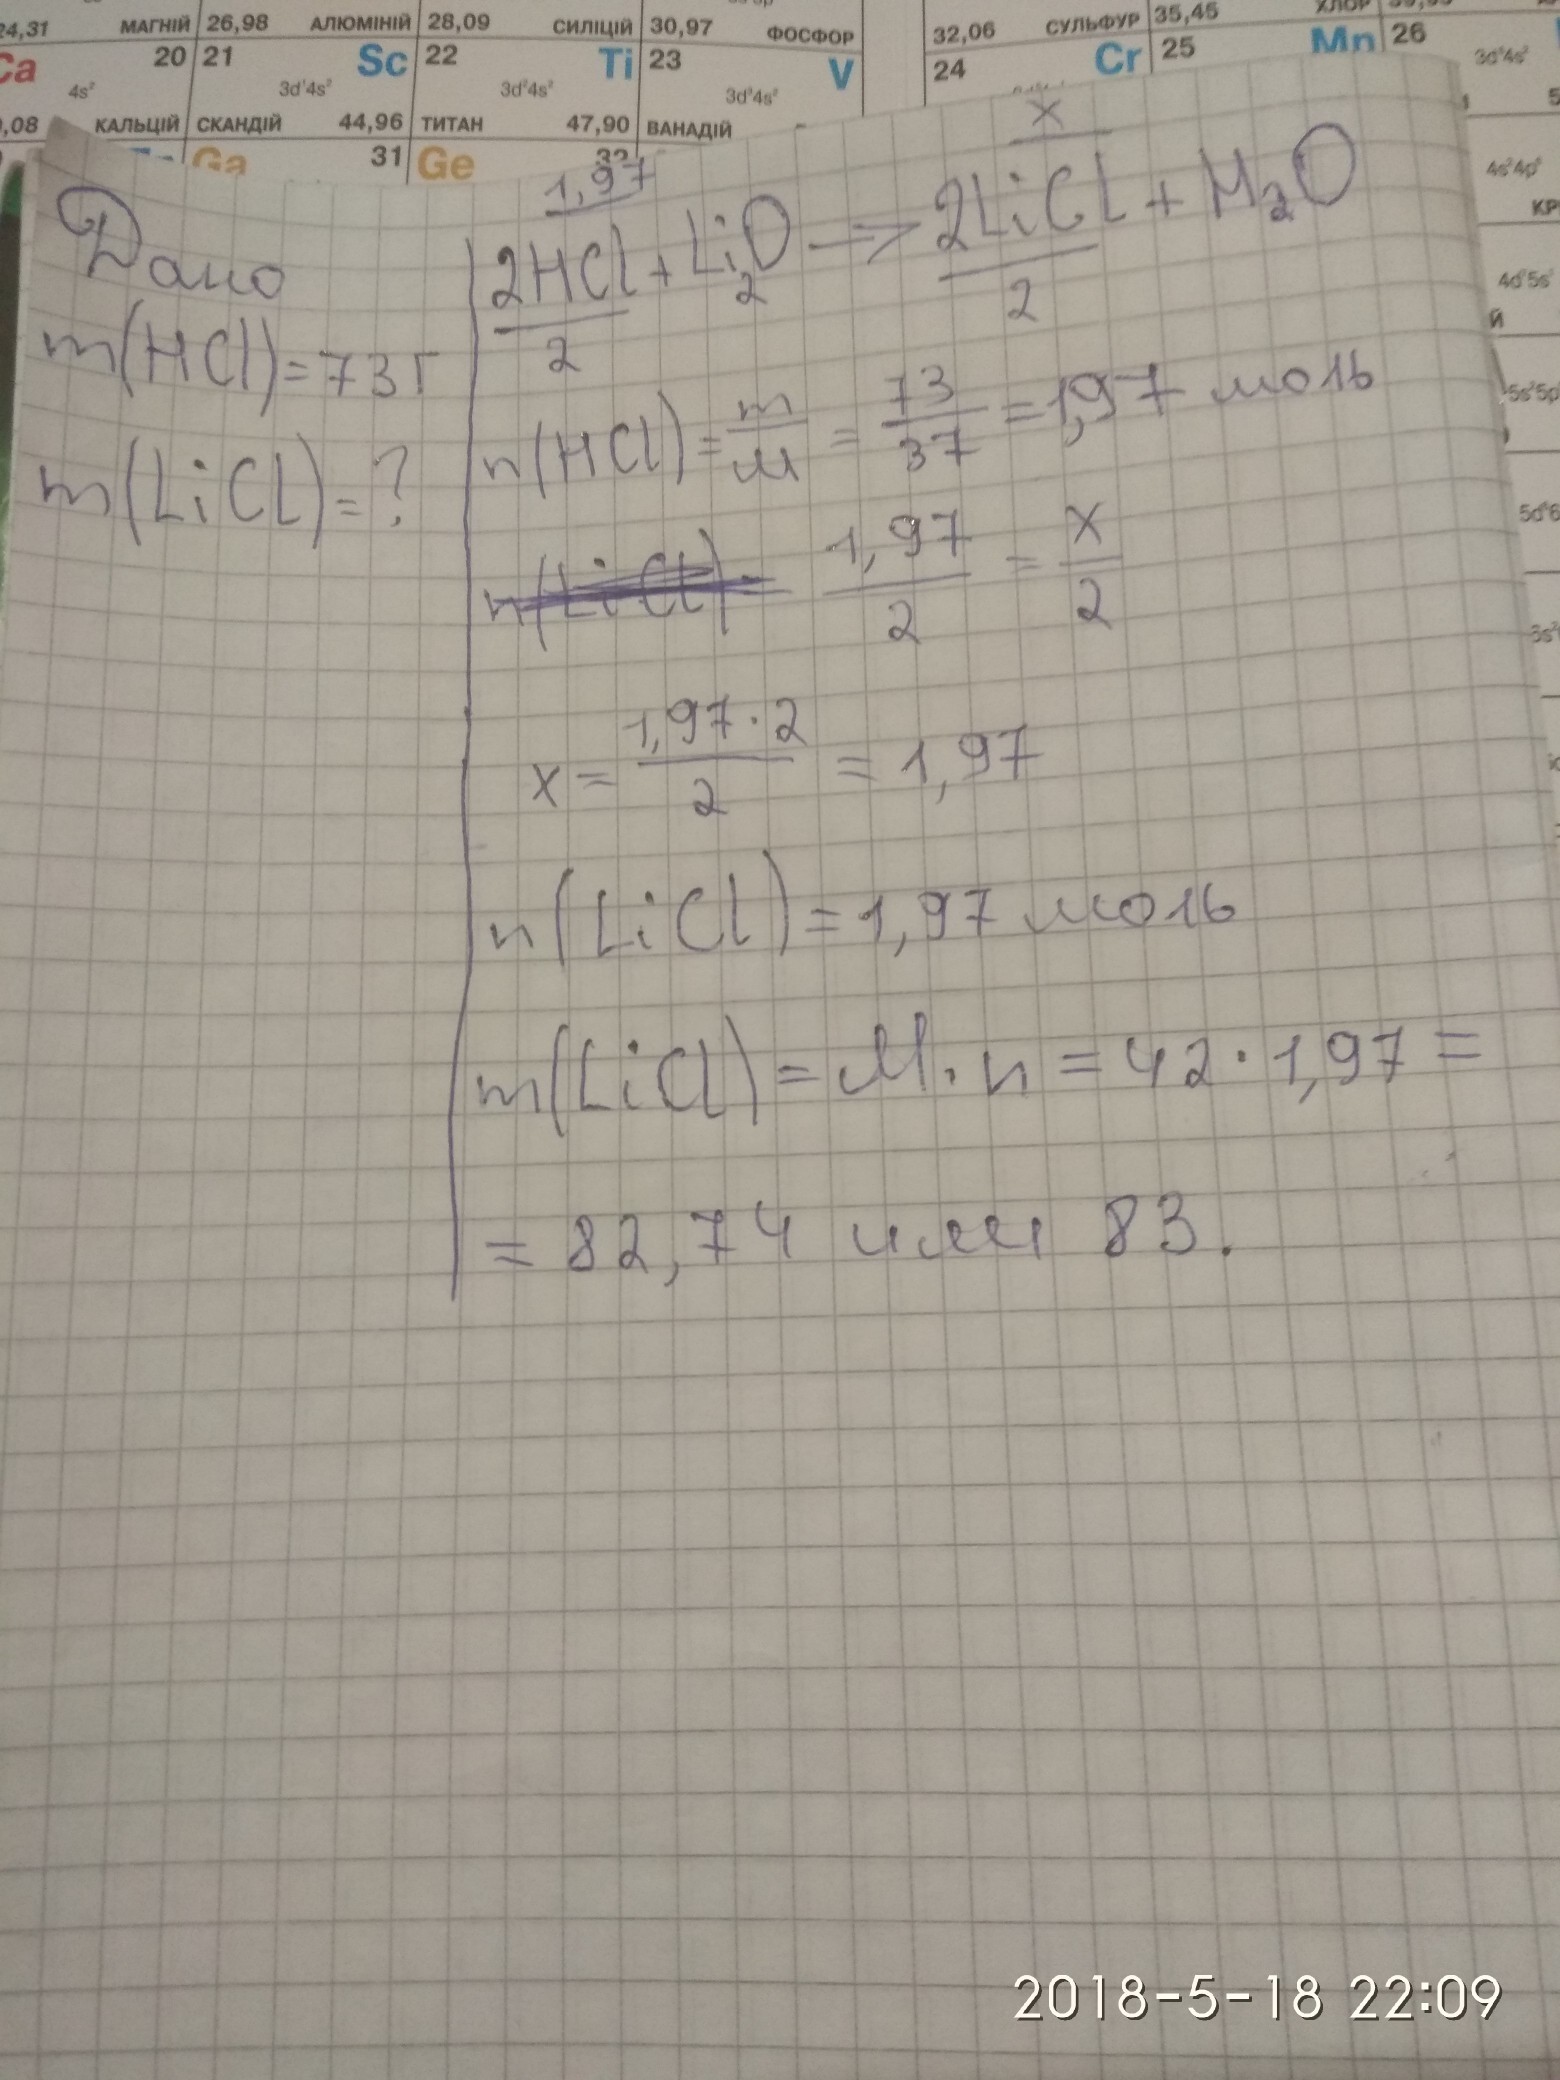 24,31 МАГНІЙ 26,98 АЛЮМІНІЙ 28,09 СИЛІЦІЙ 30,97 ФОСФОР 32,06 СУЛЬФУР 35,45 ХЛОР
Ca 20 21 Sc 22 Ti 23 V 24 Cr 25 Mn 26
4s² 3d¹4s² 3d²4s² 3d³4s² 3d⁶4s²
КАЛЬЦІЙ СКАНДІЙ 44,96 ТИТАН 47,90 ВАНАДІЙ
Ga 31 Ge 32
4s²4p⁶
КР
4d⁷5s¹
5s²5p
5d⁶
6s²
Дано
m(HCl)=73г
m(LiCl)=?
1,97 x
2HCl + Li₂O → 2LiCl + H₂O
2 2
n(HCl) = m/M = 73/37 = 1,97 моль
n(LiCl) = 1,97/2 = x/2
x = 1,97·2/2 = 1,97
n(LiCl) = 1,97 моль
m(LiCl) = M·n = 42·1,97 =
= 82,74 или 83.
2018-5-18 22:09